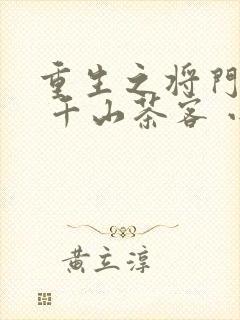 重生之将門
千山茶客
黄立淳